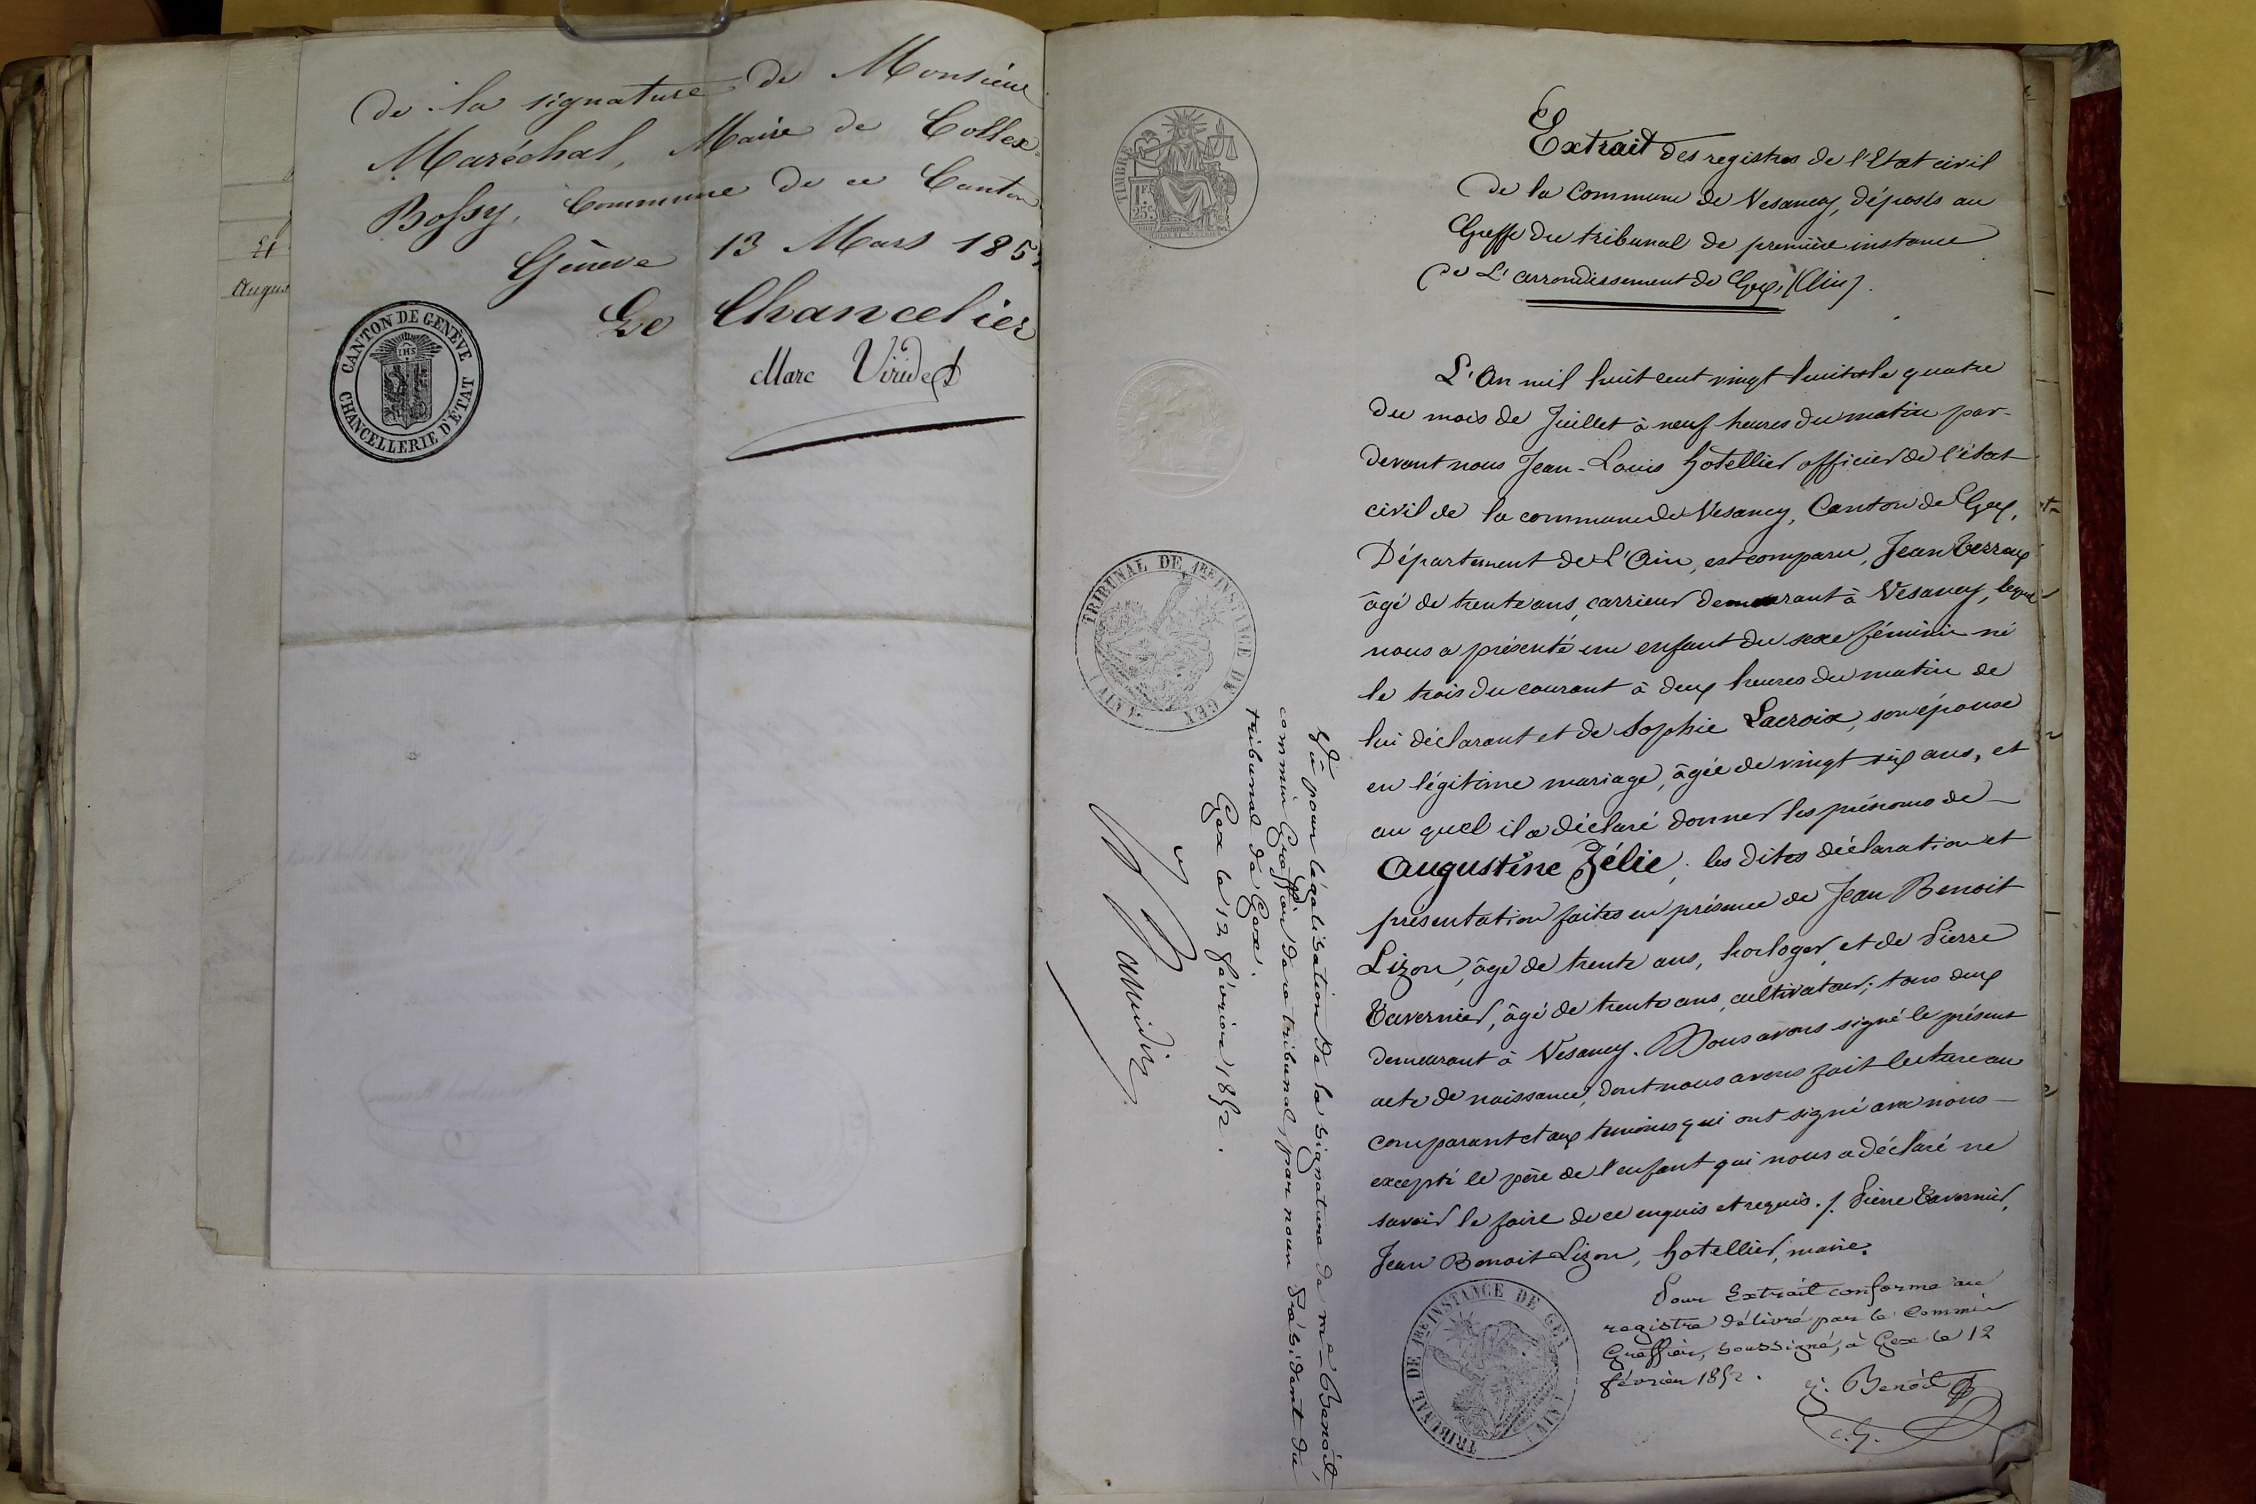 de la signature de Monsieur
Maréchal, Maire de Collex-
Bossy, Commune de ce Canton
Genève 13 Mars 1852
Le Chancelier
Marc Viridet
CANTON DE GENÈVE
CHANCELLERIE D'ÉTAT
IHS
Augus
TIMBRE
1F.
25c.
TRIBUNAL DE 1RE INSTANCE DE GEX
(AIN)
Vu pour légalisation de la signature de me Benoit,
commis Greffier de ce tribunal, par nous Président du
tribunal de Gex.
Gex le 12 février 1852.
Extrait des registres de l'Etat civil
de la Commune de Vesancy, déposés au
Greffe du tribunal de première instance
de L'arrondissement de Gex, (Ain).
L'An mil huit cent vingt huit et le quatre
du mois de Juillet à neuf heures du matin par-
devant nous Jean-Louis hotellier officier de l'état
civil de la commune de Vesancy, Canton de Gex,
Département de L'Ain, est comparu, Jean Terroux
âgé de trente ans, carrieur demeurant à Vesancy, lequel
nous a présenté un enfant du sexe féminin né
le trois du courant à deux heures du matin de
lui déclarant et de Sophie Lacroix, son épouse
en légitime mariage, âgée de vingt six ans, et
au quel il a déclaré donner les prénoms de
Augustine Zélie; les dites déclaration et
présentation faites en présence de Jean Benoit
Lizon, âgé de trente ans, horloger, et de Pierre
Tavernier, âgé de trente ans, cultivateur; tous deux
demeurant à Vesancy. Nous avons signé le présent
acte de naissance, dont nous avons fait lecture au
comparant et aux temoins qui ont signé avec nous
excepté le père de l'enfant qui nous a déclaré ne
savoir le faire de ce enquis et requis. /. Pierre Tavernier,
Jean Benoit Lizon, hotellier, maire.
Pour Extrait conforme au
registre délivré par le Commis
Greffier, soussigné, à Gex le 12
février 1852.
J. Benoit
c. G.
TRIBUNAL DE 1RE INSTANCE DE GEX
(AIN)